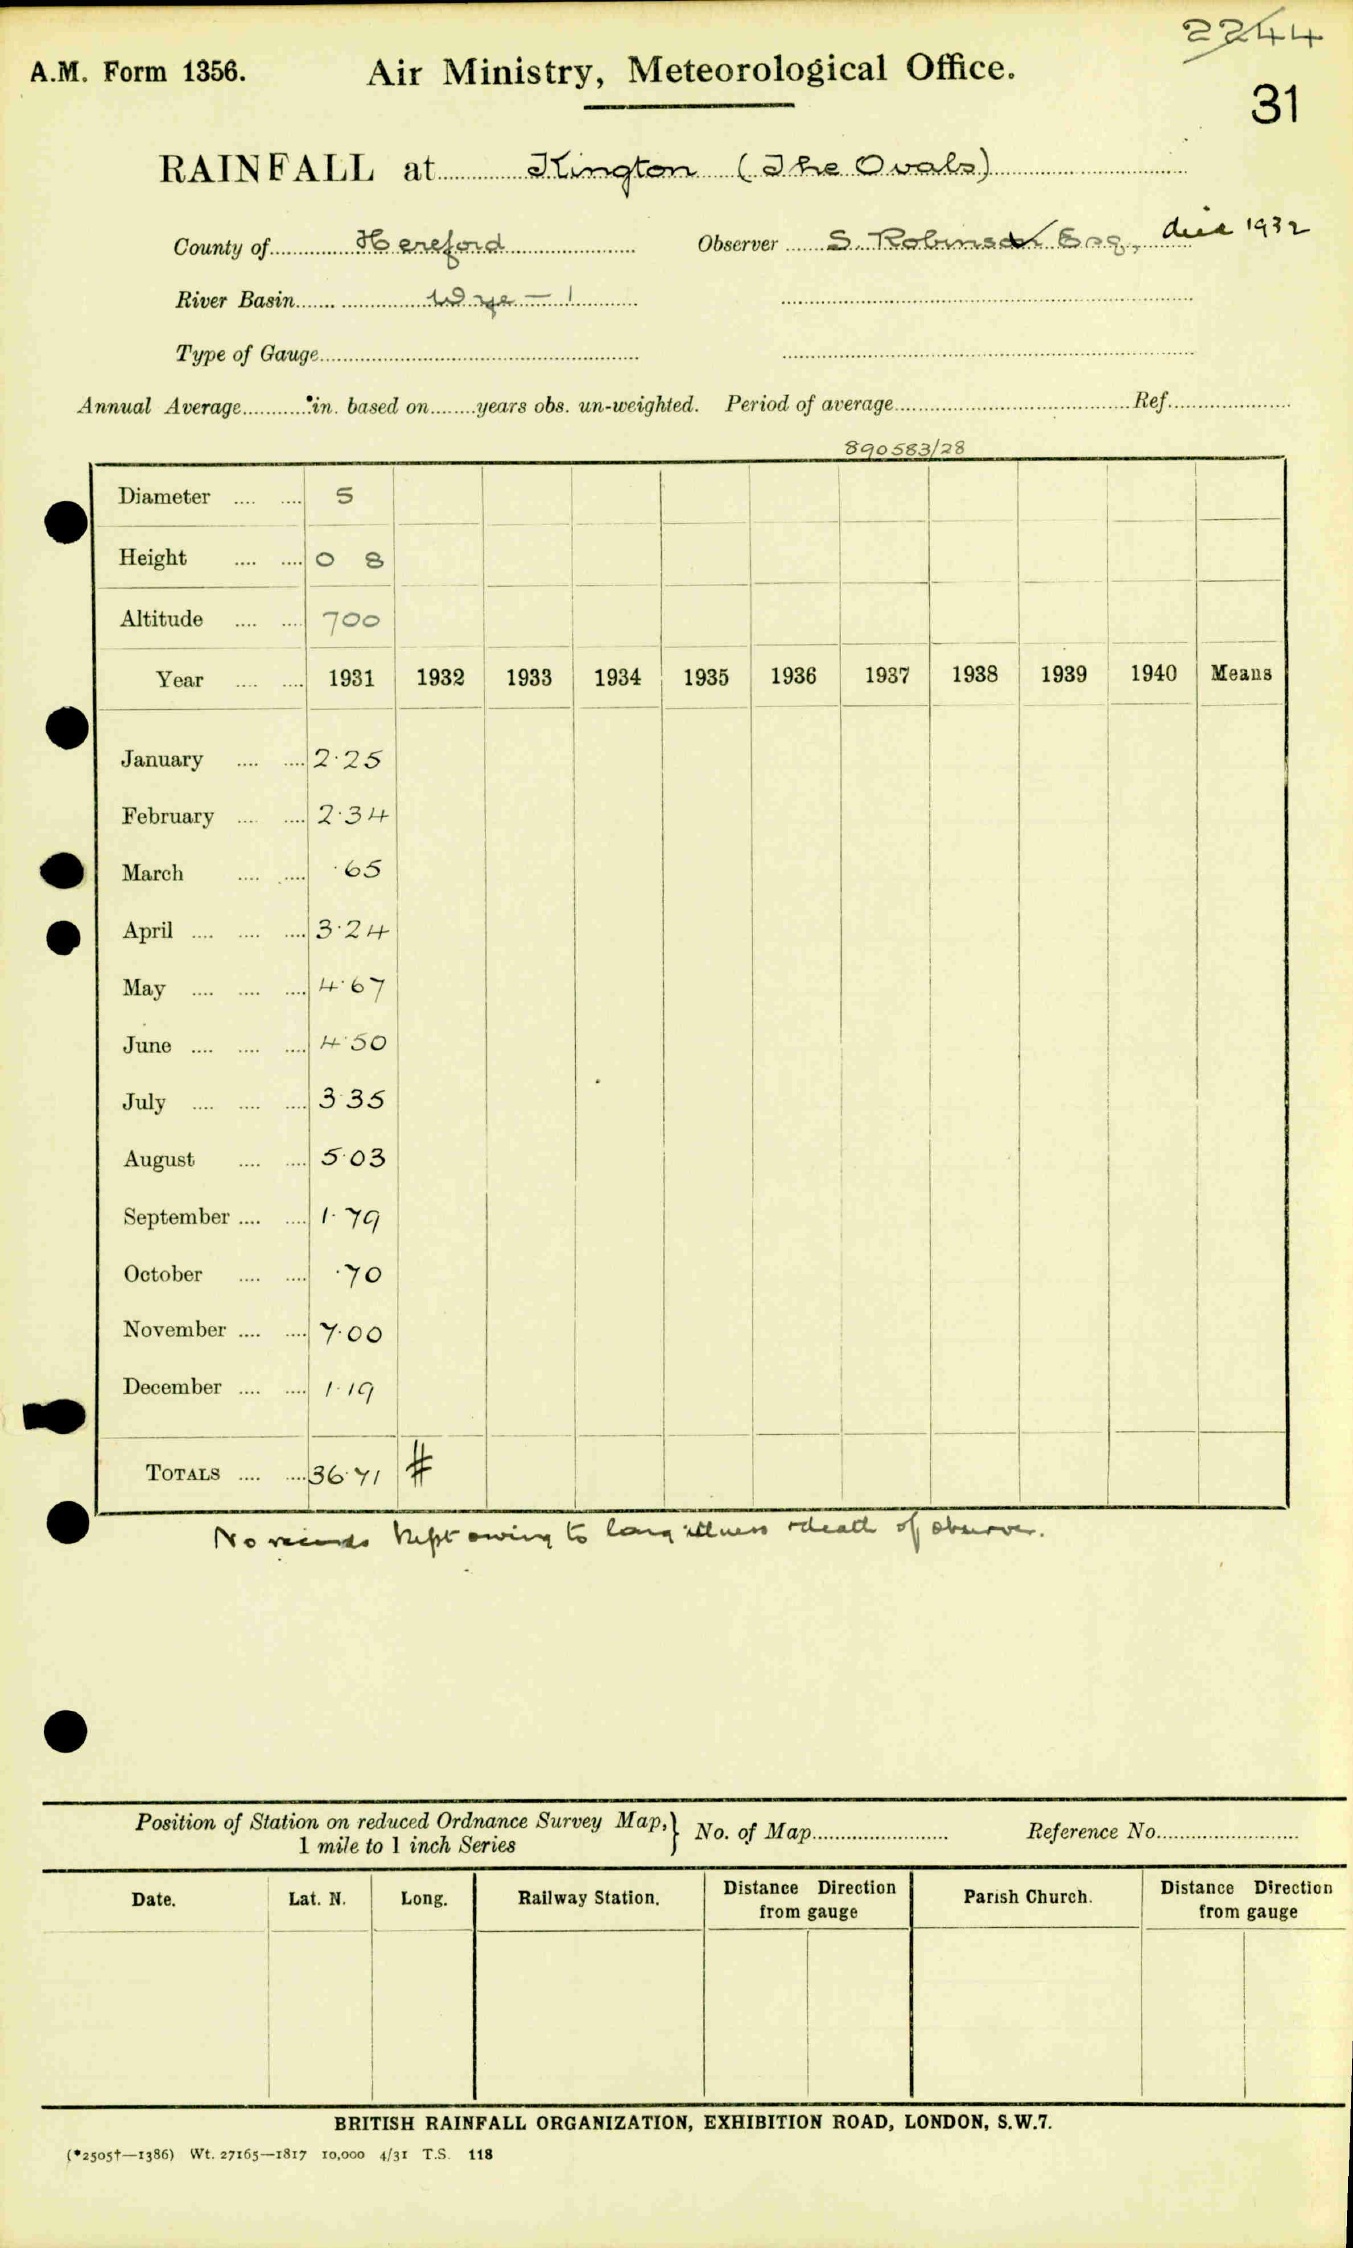 2244
A.M. Form 1356. Air Ministry, Meteorological Office.
31
RAINFALL at Kington (The Ovals)
County of Hereford Observer S. Robinson Esq., died 1932
River Basin Wye — 1
Type of Gauge
Annual Average in. based on years obs. un-weighted. Period of average Ref.
890583/28
Diameter 5
Height 0 8
Altitude 700
Year 1931 1932 1933 1934 1935 1936 1937 1938 1939 1940 Means
January 2·25
February 2·34
March ·65
April 3·24
May 4·67
June 4·50
July 3·35
August 5·03
September 1·79
October ·70
November 7·00
December 1·19
TOTALS 36·71 #
No records kept owing to long illness & death of observer.
Position of Station on reduced Ordnance Survey Map, } No. of Map Reference No.
1 mile to 1 inch Series
Date. Lat. N. Long. Railway Station. Distance Direction from gauge Parish Church. Distance Direction from gauge
BRITISH RAINFALL ORGANIZATION, EXHIBITION ROAD, LONDON, S.W.7.
(*2505†—1386) Wt. 27165—1817 10,000 4/31 T.S. 118